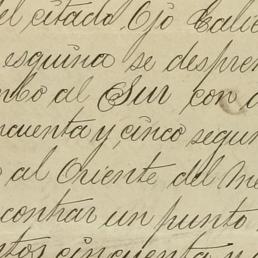 el citado Ojo Calie
esquina se despren
mbo al Sur con d
ncuenta y cinco segun
al Oriente del me
contrar un punto
ntos cincuenta y